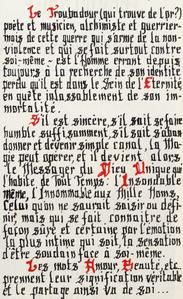 Le Troubadour (qui trouve de l'or?)
poète et musicien, alchimiste et guerrier-
mais de cette guerre qui s'arme de la non-
violence et qui se fait surtout contre
soi-même - est l'Homme errant depuis
toujours à la recherche de son identité
perdu qu'il est dans le Sein de l'Eternité
en quête inlassablement de son im-
mortalité.
S'il est sincère, s'il sait se faire
humble suffisamment, s'il sait s'aban-
donner et devenir simple canal, la Ma-
gie peut opérer, et il devient alors
le Messager du Dieu Unique qui
l'habite de tout Temps: l'Insondable
même, l'Innommable aux Mille Noms,
Celui qu'on ne saurait saisir ou défi-
nir mais qui se fait connaître de
façon sûre et certaine par l'émotion
la plus intime qui soit, la sensation
d'être soudain face à soi-même.
Les mots Amour, Beauté, etc...
prennent leur signification véritable
et le partage ainsi va de soi...